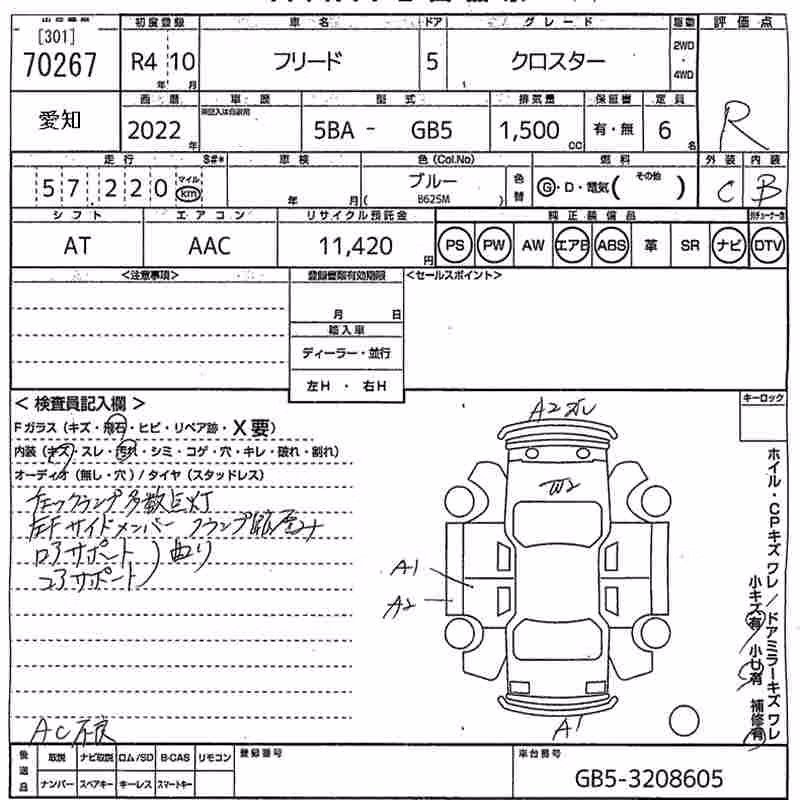 [301]
70267
初度登録
車名
ドア
グレード
駆動
評価点
R4 10
年 月
フリード
5
クロスター
2WD
・
4WD
R
愛知
西暦
車歴
型式
排気量
保証書
定員
2022
年
5BA - GB5
1,500
CC
有・無
6
名
走行
S#*
車検
色(Col.No)
燃料
外装
内装
57,220
マイル
km
年 月
ブルー
B625M
色替
G・D・電気( その他 )
C
B
シフト
エアコン
リサイクル預託金
純正装備品
AT
AAC
11,420
円
PS PW AW エアB ABS 革 SR ナビ DTV
<注意事項>
登録書類有効期限
<セールスポイント>
月 日
輸入車
ディーラー・並行
左H ・ 右H
< 検査員記入欄 >
キーロック
Fガラス(キズ・飛石・ヒビ・リペア跡・X要)
内装(キズ・スレ・汚れ・シミ・コゲ・穴・キレ・破れ・割れ)
オーディオ(無し・穴)/タイヤ(スタッドレス)
チェックランプ多数点灯
左Fサイドメンバー
ロアサポート
コアサポート
曲り
AC不良
A2
W2
A1
A2
A1
ホイル・CPキズ ワレ/ドアミラーキズ ワレ
小キズ有 小U有 補修有
後送品
取説 ナビ取説 ロム/SD B-CAS リモコン
ナンバー スペアキー キーレス スマートキー
登録番号
車台番号
GB5-3208605